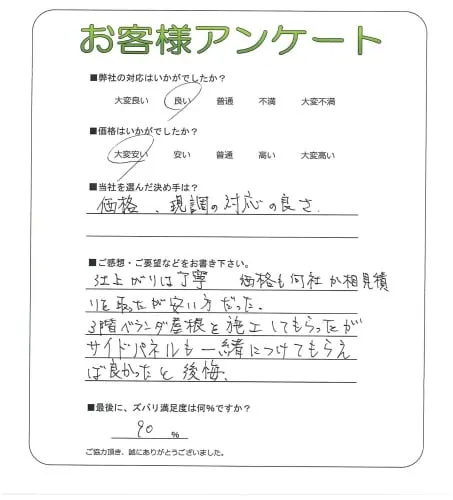 お客様アンケート
■弊社の対応はいかがでしたか?
大変良い 良い 普通 不満 大変不満
■価格はいかがでしたか?
大変安い 安い 普通 高い 大変高い
■当社を選んだ決め手は?
価格、現調の対応の良さ.
■ご感想・ご要望などをお書き下さい。
仕上がりは丁寧 価格も何社か相見積
りを取ったが安い方だった.
3階ベランダ屋根を施工してもらったが
サイドパネルも一緒につけてもらえ
ば良かったと後悔.
■最後に、ズバリ満足度は何%ですか?
90 %
ご協力頂き、誠にありがとうございました。